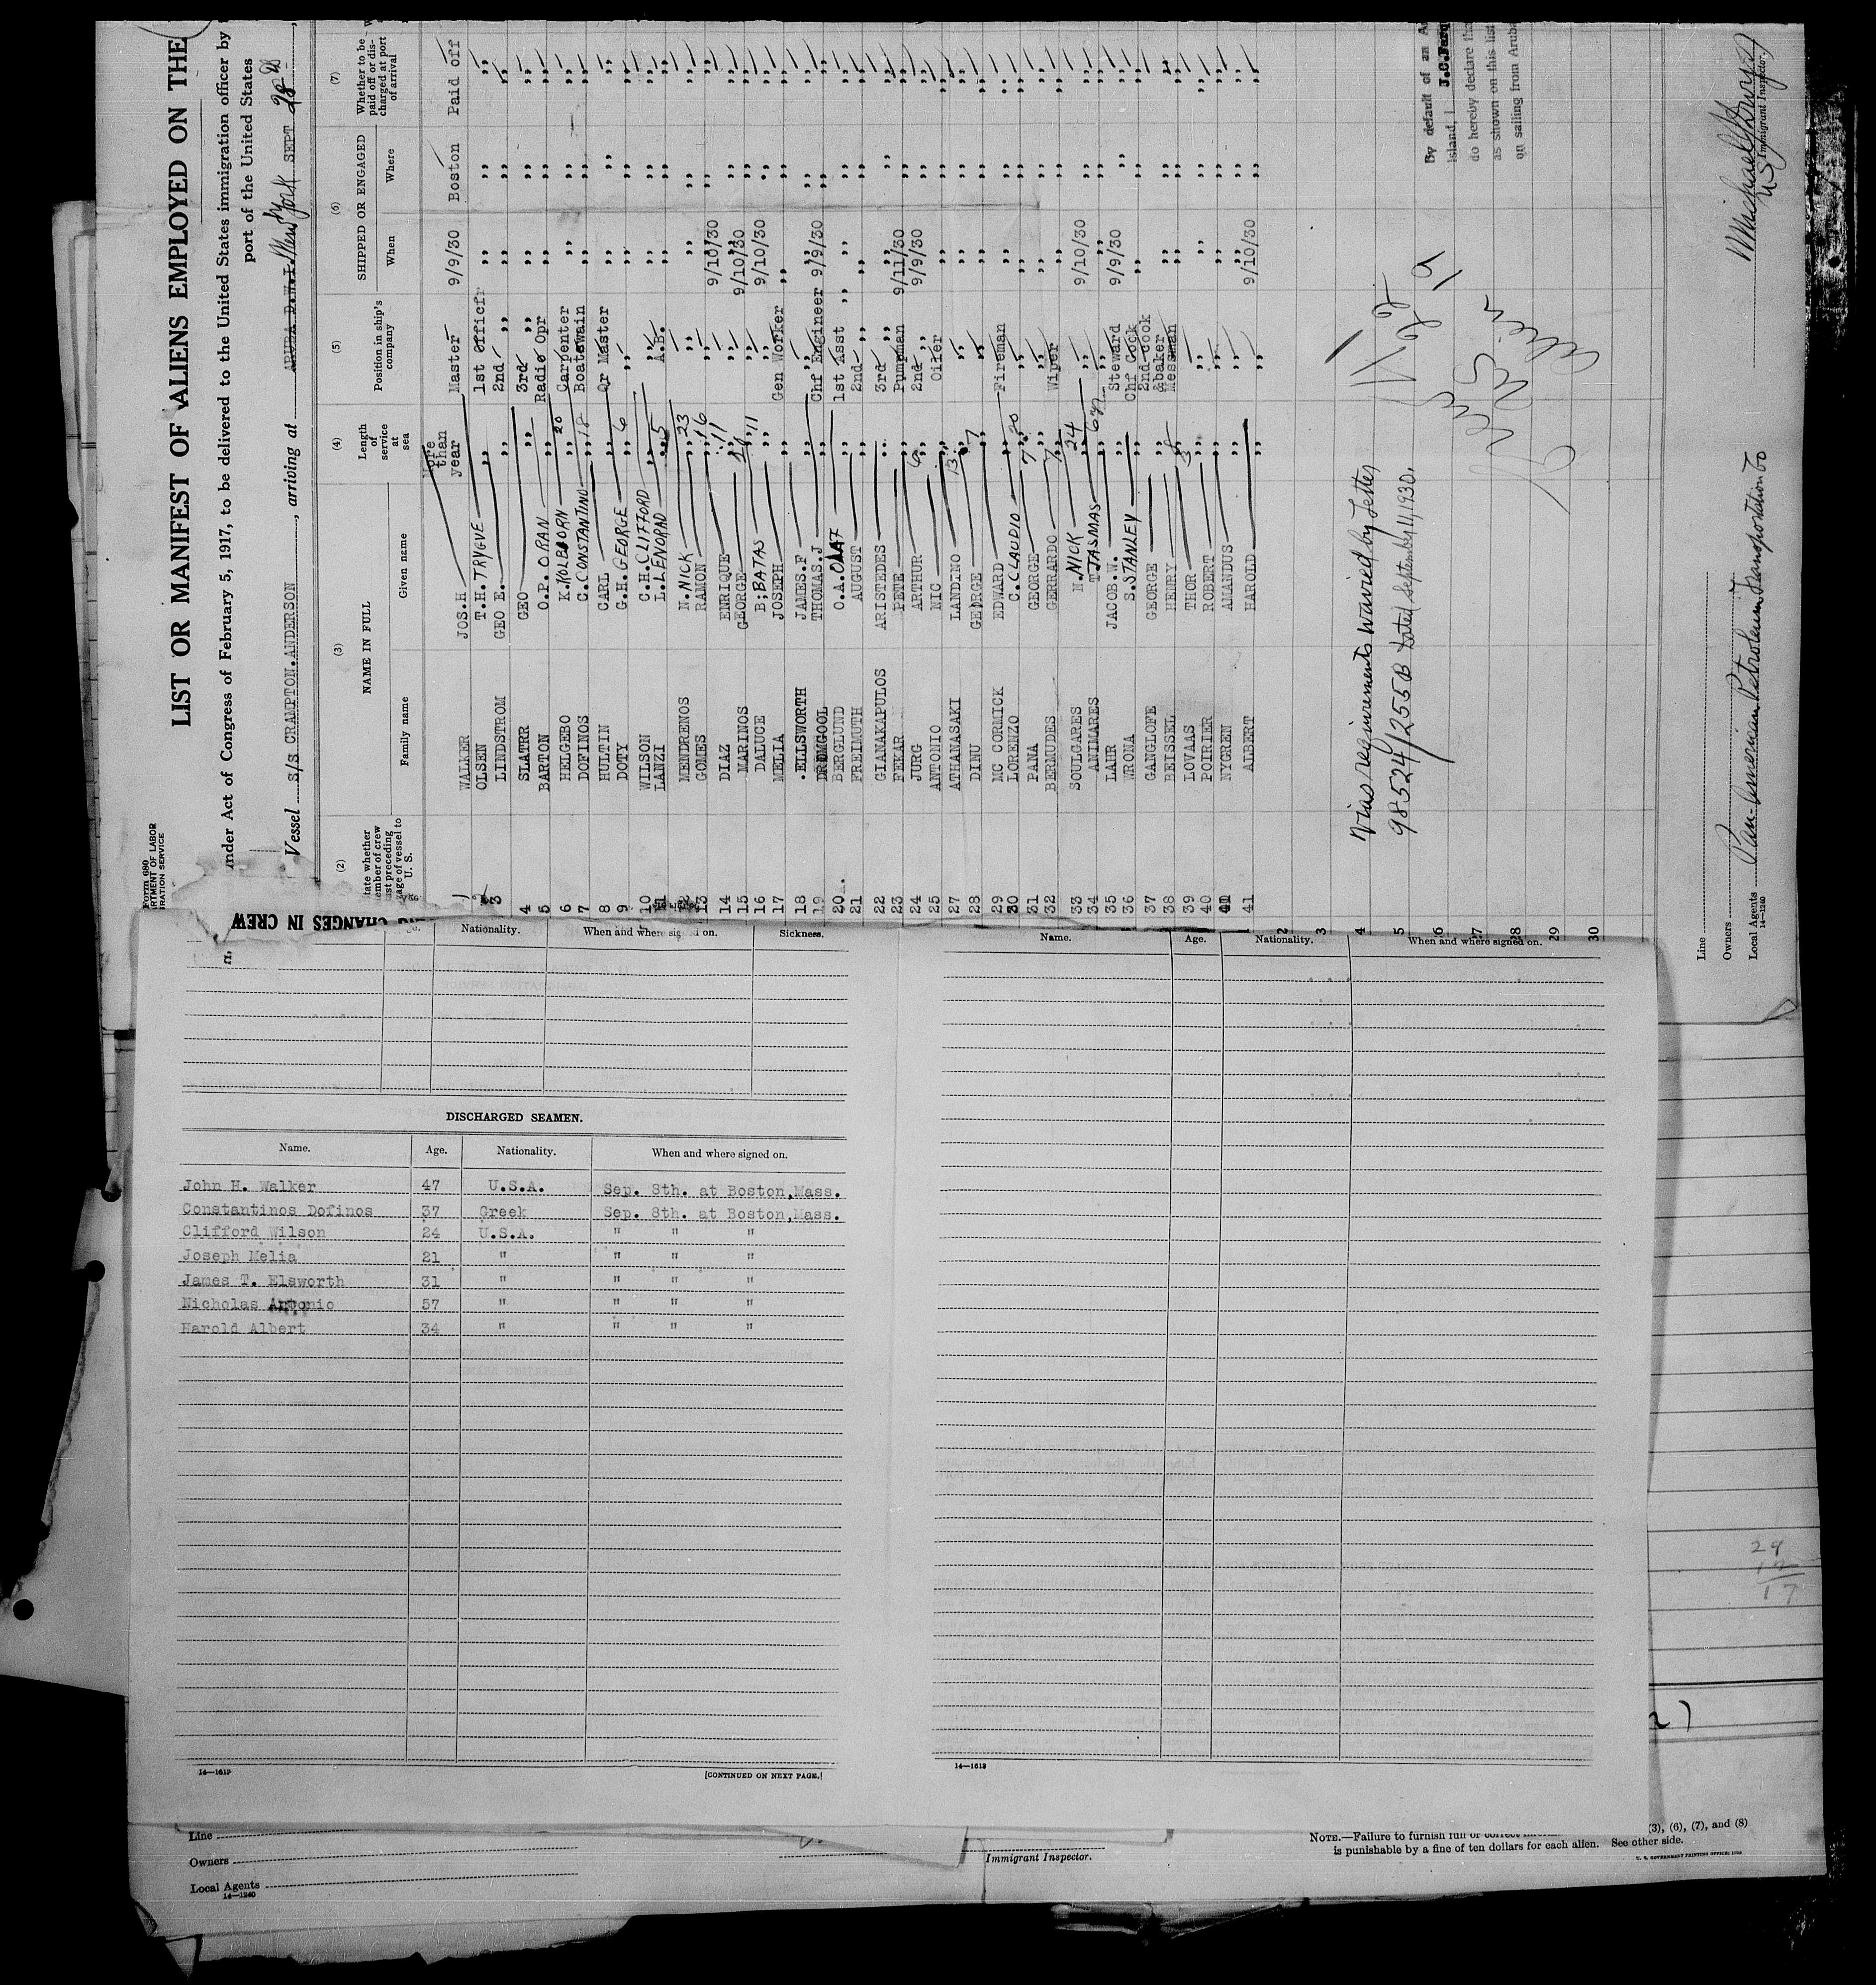 Form 680
RTMENT OF LABOR
RATION SERVICE
LIST OR MANIFEST OF ALIENS EMPLOYED ON THE
nder Act of Congress of February 5, 1917, to be delivered to the United States immigration officer by
port of the United States
Vessel S/S CRAMPTON.ANDERSON, arriving at ARUBA D.W.I. New York SEPT 28
(2) (3) (4) (5) (6) (7)
tate whether
ember of crew
st preceding
age of vessel to
U. S.
NAME IN FULL
Family name Given name
Length
of
service
at
sea
Position in ship's
company
SHIPPED OR ENGAGED
When Where
Whether to be
paid off or dis-
charged at port
of arrival
than
year
1 WALKER JOS.H Master 9/9/30 Boston Paid off
2 OLSEN T.H. TRYGVE ,, 1st Officer ,, ,, ,,
3 LINDSTROM GEO E. ,, 2nd ,, ,, ,, ,,
4 SLATER GEO ,, 3rd ,, ,, ,, ,,
5 BARTON O.P. ORAN ,, Radio Opr ,, ,, ,,
6 HELGEBO K. KOLBJORN ,, 20 Carpenter ,, ,, ,,
7 DOFINOS C. CONSTANTINO ,, 18 Boatswain ,, ,, ,,
8 HULTIN CARL ,, Qr Master ,, ,, ,,
9 DOTY G.H. GEORGE ,, 6 ,, ,, ,, ,,
10 WILSON C.H. CLIFFORD ,, ,, ,, ,, ,,
11 LANZI L. LENORAD ,, 5 A.B. ,, ,, ,,
12 MENDRENOS N. NICK ,, 23 ,, ,, ,, ,,
13 GOMES RAMON ,, 16 ,, 9/10/30 ,, ,,
14 DIAZ ENRIQUE ,, 11 ,, ,, ,, ,,
15 MARINOS GEORGE ,, ,, 9/10/30 ,, ,,
16 DALUCE B. BATAS ,, 11 ,, 9/10/30 ,, ,,
17 MELIA JOSEPH ,, Gen Worker ,, ,, ,,
18 ELLSWORTH JAMES.F ,, ,, ,, ,, ,,
19 DROMGOOL THOMAS.J ,, Chf Engineer 9/9/30 ,, ,,
20 BERGLUND O.A. OLAF ,, 1st Asst ,, ,, ,, ,,
21 FREIMUTH AUGUST ,, 2nd ,, ,, ,, ,,
22 GIANAKAPULOS ARISTEDES ,, 3rd ,, ,, ,, ,,
23 FEKAR PETE ,, Pumpman 9/11/30 ,, ,,
24 JURG ARTHUR 6 2nd ,, 9/9/30 ,, ,,
25 ANTONIO NIC ,, Oiler ,, ,, ,,
27 ATHANASAKI LANDINO 13 ,, ,, ,, ,,
28 DINU GEORGE 7 ,, ,, ,, ,,
29 MC CORMICK EDWARD ,, Fireman ,, ,, ,,
30 LORENZO C. CLAUDIO ,, 20 ,, ,, ,, ,,
31 PANA GEORGE 7 ,, ,, ,, ,,
32 BERMUDES GERRARDO 7 Wiper ,, ,, ,,
33 SOULGARES N. NICK 24 ,, 9/10/30 ,, ,,
34 ANIMARES T TASMAS ,, ,, ,, ,,
35 LAHR JACOB.W. ,, Steward 9/9/30 ,, ,,
36 WRONA S. STANLEY ,, Chf Cook ,, ,, ,,
37 GANGLOFE GEORGE ,, 2nd Cook &baker ,, ,, ,,
38 BEISSEL HENRY ,, Messman ,, ,, ,,
39 LOVAAS THOR ,, ,, ,, ,,
40 POIRIER ROBERT ,, ,, ,, ,, ,,
41 NYGREN AMANDUS ,, ,, ,, ,, ,,
41 ALBERT HAROLD ,, ,, 9/10/30 ,, ,,
1
2
3
4
5
6
27
28
29
30
Visa requirements waived by Letter
98524/255B Dated September 11, 1930.
By default of an A
Island, I J.C.
do hereby declare tha
as shown on this list
on sailing from Aruba
Line
Owners
Local Agents Pan-American Petroleum Transportation Co
14—1240
U S Immigrant Inspector.
CHANGES IN CREW
Nationality. When and where signed on. Sickness.
Name. Age. Nationality. When and where signed on.
DISCHARGED SEAMEN.
Name. Age. Nationality. When and where signed on.
John H. Walker 47 U.S.A. Sep. 8th. at Boston,Mass.
Constantinos Dofinos 37 Greek Sep. 8th. at Boston,Mass.
Clifford Wilson 24 U.S.A. " " "
Joseph Melia 21 " " " "
James T. Elsworth 31 " " " "
Nicholas Antonio 57 " " " "
Harold Albert 34 " " " "
14—1613
[CONTINUED ON NEXT PAGE.]
14—1613
29
12
17
Line
Owners
Local Agents
14—1240
Immigrant Inspector.
NOTE.—Failure to furnish full or correct
(3), (6), (7), and (8)
is punishable by a fine of ten dollars for each alien. See other side.
U. S. GOVERNMENT PRINTING OFFICE: